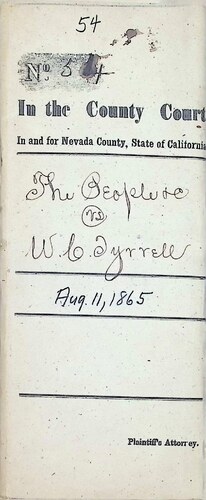 54
No. 54
In the County Court
In and for Nevada County, State of California
The People &c
vs
W. C. Tyrrell
Aug. 11, 1865
Plaintiff's Attorney.